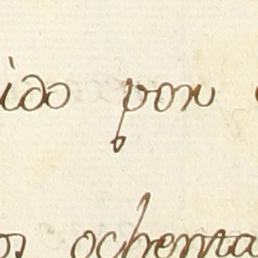 ido por
os ochenta